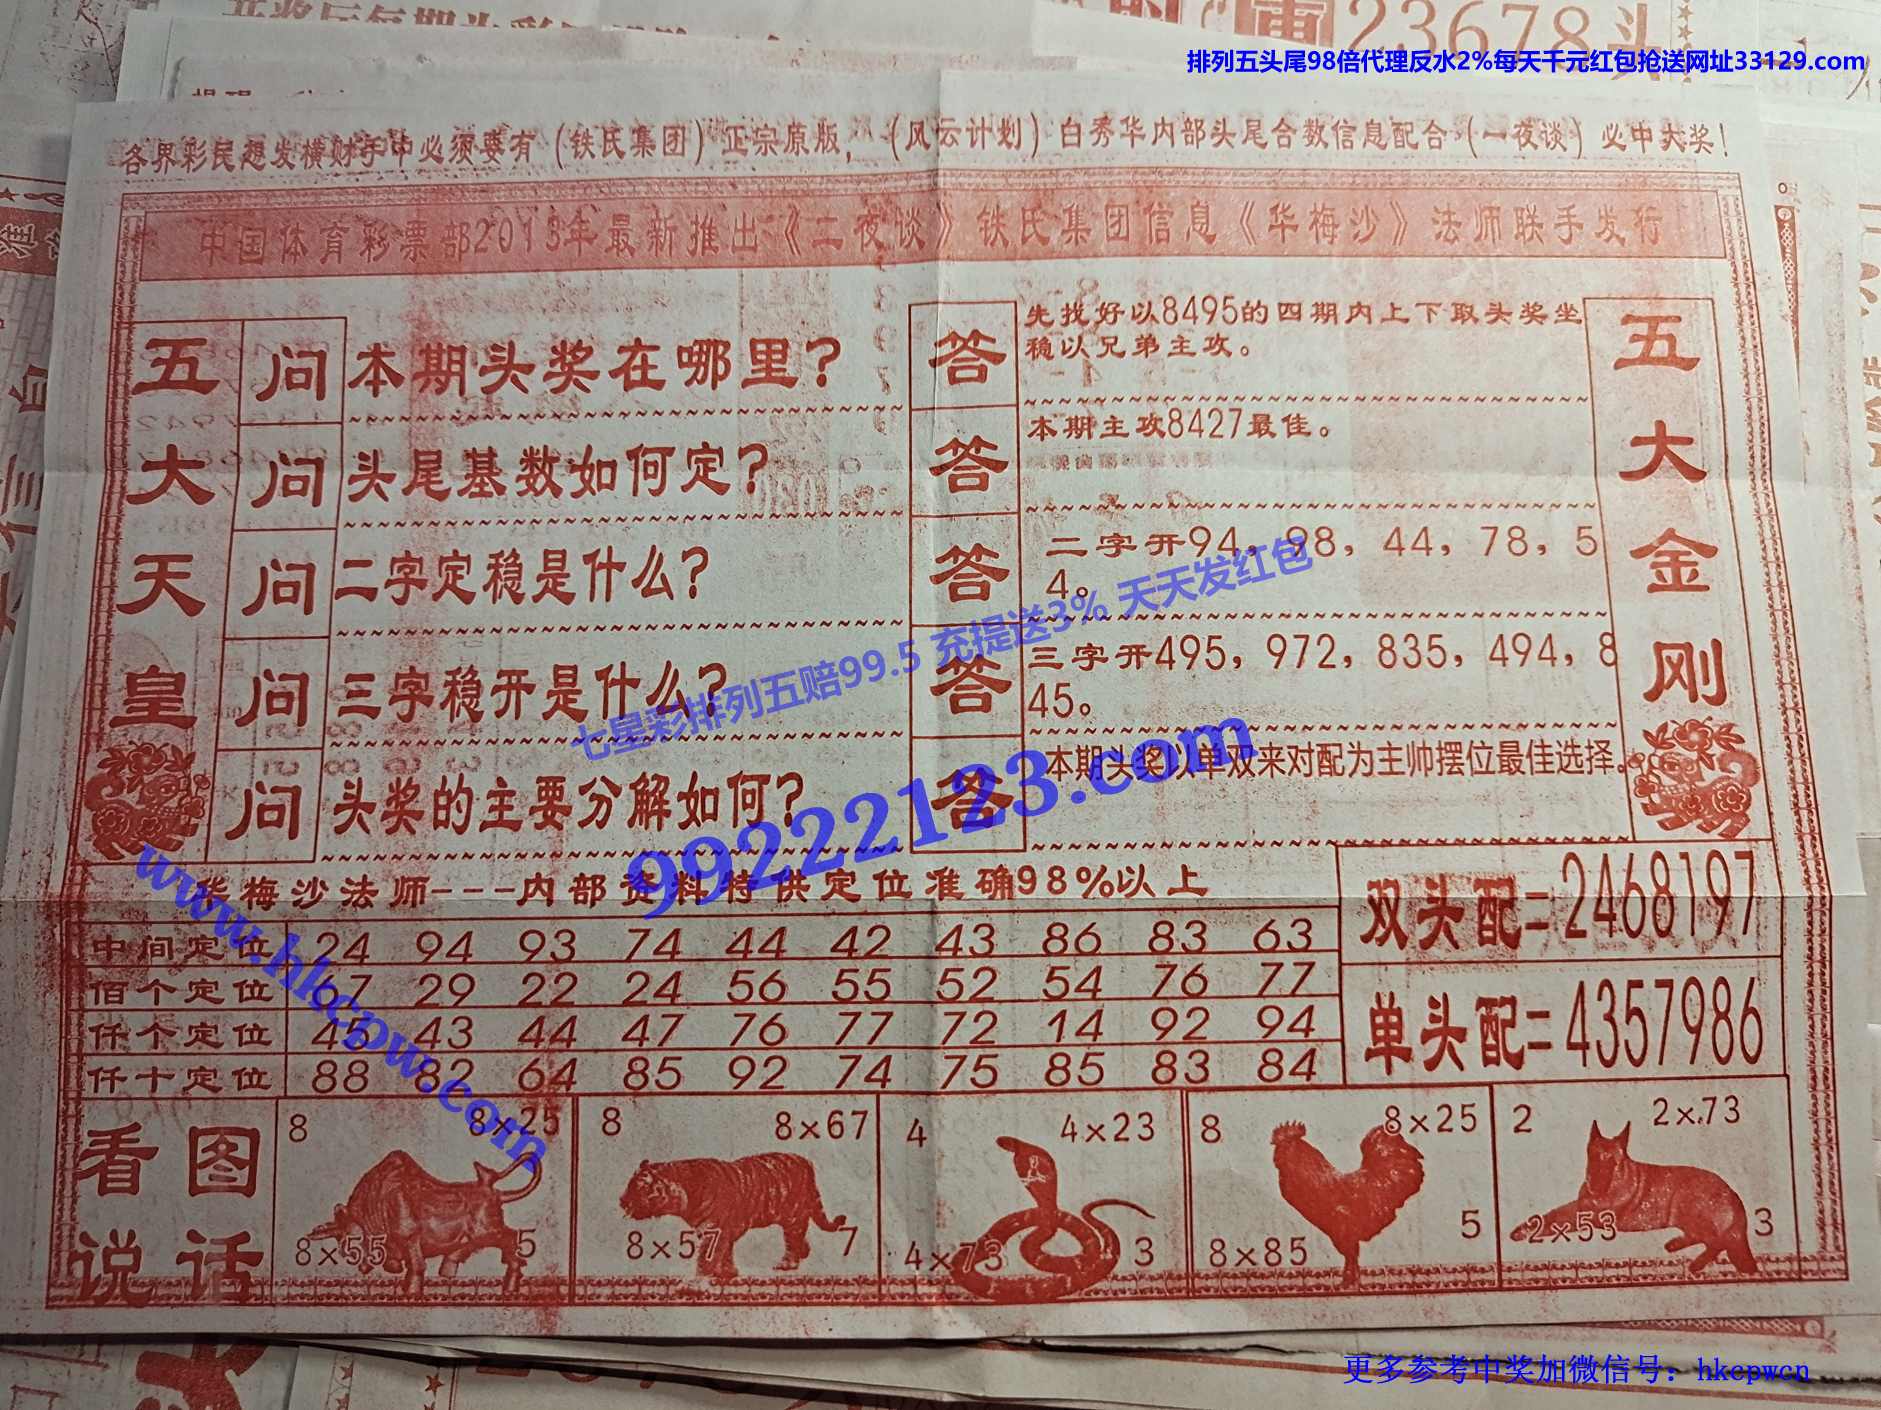 23678头
排列五头尾98倍代理反水2%每天千元红包抢送网址33129.com
各界彩民想发横财手中必须要有（铁氏集团）正宗原版，（风云计划）白秀华内部头尾合数信息配合（一夜谈）必中大奖！
中国体育彩票部2013年最新推出《二夜谈》铁氏集团信息《华梅沙》法师联手发行
五大天皇
问 本期头奖在哪里？
答 先找好以8495的四期内上下取头奖坐
稳以兄弟主攻。
问 头尾基数如何定？
答 本期主攻8427最佳。
问 二字定稳是什么？
答 二字开94，98，44，78，5
4。
问 三字稳开是什么？
答 三字开495，972，835，494，8
45。
问 头奖的主要分解如何？
答 本期头奖以单双来对配为主帅摆位最佳选择。
五大金刚
七星彩排列五赔99.5 充提送3% 天天发红包
99222123.com
www.hkcpw.com
华梅沙法师---内部资料特供定位准确98%以上
中间定位 24 94 93 74 44 42 43 86 83 63
佰个定位 67 29 22 24 56 55 52 54 76 77
仟个定位 45 43 44 47 76 77 72 14 92 94
仟十定位 88 82 64 85 92 74 75 85 83 84
双头配=2468197
单头配=4357986
看图
说话
8 8×25
8×55 5
8 8×67
8×57 7
4 4×23
4×73 3
8 8×25
8×85 5
2 2×73
2×53 3
更多参考中奖加微信号：hkcpwcn